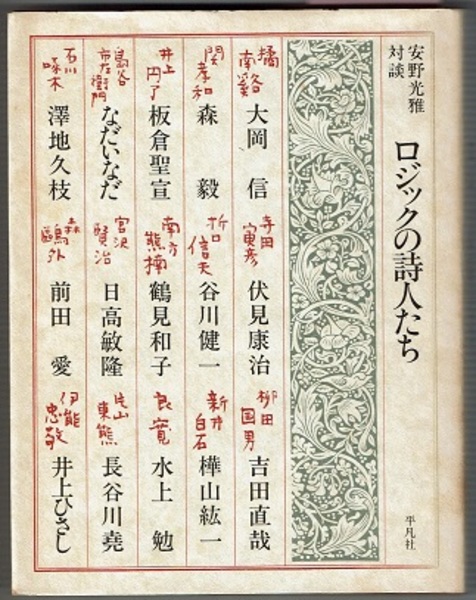 安野光雅
対談
ロジックの詩人たち
平凡社
橘南谿
大岡 信
寺田寅彦
伏見康治
柳田国男
吉田直哉
関孝和
森 毅
折口信夫
谷川健一
新井白石
樺山紘一
井上円了
板倉聖宣
南方熊楠
鶴見和子
良寛
水上 勉
島谷市左衛門
なだいなだ
宮沢賢治
日高敏隆
片山東熊
長谷川堯
石川啄木
澤地久枝
森鷗外
前田 愛
伊能忠敬
井上ひさし